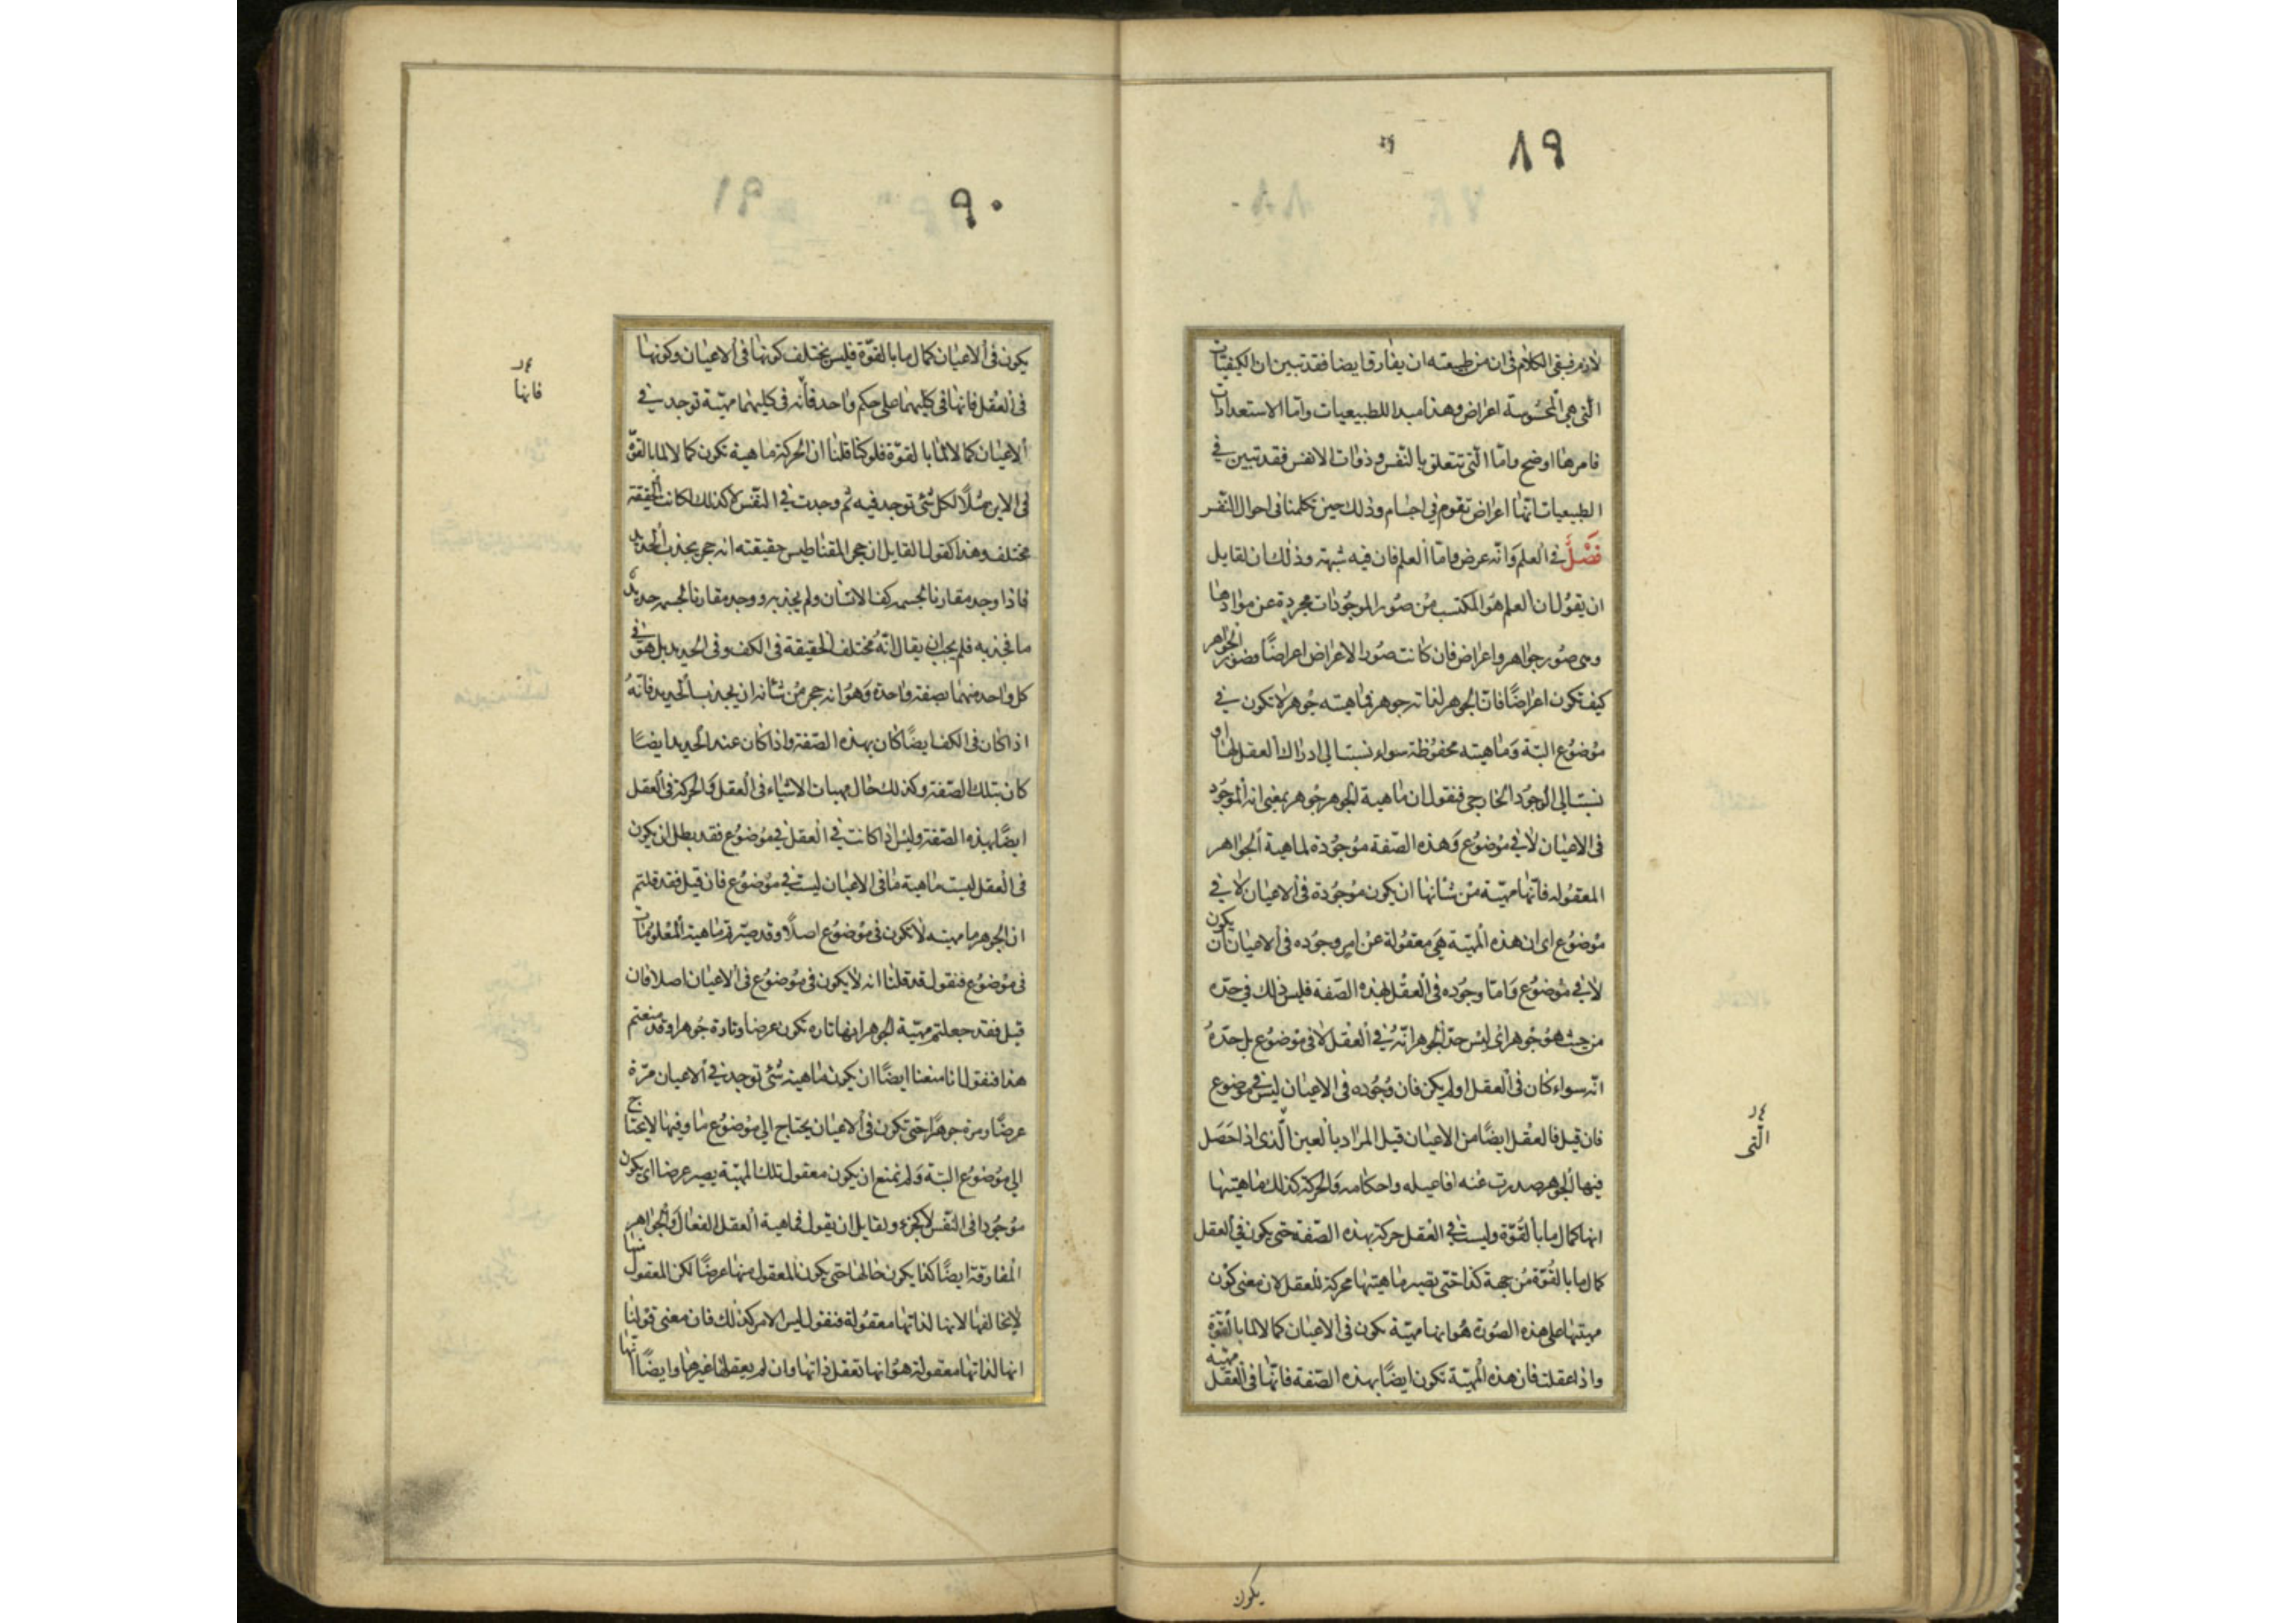 ٨٩
لازم فبقى الكلام فى ان من طبيعته ان يفارق ايضا فقد تبين ان الكيفيات
الّتى هى المحسوسة اعراض وهذا مبدا للطبيعيات وامّا الاستعدادات
فامرها اوضح وامّا الّتى تتعلق بالنّفس وذوات الانفس فقد تبين في
الطبيعيات انّها اعراض تقوم في اجسام وذلك حين تكلمنا فى احوال النّفس
فصل في العلم وانّه عرض وامّا العلم فان فيه شبهة وذلك ان لقايل
ان يقول ان العلم هو المكتسب من صور الموجودات مجردة عن موادها
وهى صور جواهر واعراض فان كانت صور الاعراض اعراضًا وصور الجواهر
كيف تكون اعراضًا فانّ الجوهر لذاته جوهر فماهيته جوهر لا تكون في
موضوع البتة وماهيته محفوظة سواء نسبت الى ادراك العقل لها او
نسبت الى الوجود الخارجى فنقول ان ماهية الجوهر جوهر بمعنى انه الموجود
فى الاعيان لا في موضوع وهذه الصّفة موجودة لماهية الجواهر
المعقوله فانّها مهيّة من شانها ان يكون موجودة فى الاعيان لا في
موضوع اى ان هذه المهيّة هى معقولة عن امر وجوده فى الاعيان ان يكون
لا في موضوع وامّا وجوده فى العقل بهذه الصّفة فليس ذلك في حدّه
من حيث هو جوهر اى ليس حدّ الجوهر انّه في العقل لا فى موضوع بل حدّه
انّه سواء كان فى العقل او لم يكن فان وجوده فى الاعيان ليس في موضوع
فان قيل فالعقل ايضًا من الاعيان قيل المراد بالعين الّذى اذا حصل
الّتى
فيها الجوهر صدرت عنه افاعيله واحكامه والحركة كذلك ماهيتها
انها كمال ما بالقوّة وليست في العقل حركة بهذه الصّفة حتى يكون في العقل
كمال ما بالقوّة من جهة كذا حتى تصير ماهيتها محركة للعقل لان معنى كون
مهيتها على هذه الصّورة هو انها مهيّة يكون فى الاعيان كمالا لما بالقوّة
واذا عقلت فان هذه المهيّة تكون ايضًا بهذه الصّفة فانّها فى العقل مهيّة
يكون
٩٠
يكون فى الاعيان كمال ما بالقوّة فليس يختلف كونها فى الاعيان وكونها
فى العقل فانها فى كليهما على حكم واحد فانّه فى كليهما مهيّة توجد في
فانها
الاعيان كمالا لما بالقوّة فلو كنا قلنا ان الحركة ماهية تكون كمالا لما بالقوّة
فى الاين مثلًا لكل شئ توجد فيه ثم وجدت في النّفس لا كذلك لكانت الحقيقة
مختلف وهذا كقول القايل ان حجر المقناطيس حقيقته انه حجر يجذب الحديد
فاذا وجد مقارنا لجسم كف الانسان ولم يجذبه ووجد مقارنا لجسم حديد
ما فجذبه فلم يجب ان يقال انّه مختلف الحقيقة فى الكف وفى الحديد بل هو في
كل واحد منهما بصفة واحدة وهو انه حجر من شانه ان يجذب الحديد فانّه
اذا كان فى الكف ايضًا كان بهذه الصّفة واذا كان عند الحديد ايضًا
كان بتلك الصّفة وكذلك حال مهيات الاشياء فى العقل والحركة فى العقل
ايضًا بهذه الصّفة وليس اذا كانت في العقل في موضوع فقد بطل ان يكون
فى العقل ليست ماهية ما فى الاعيان ليست في موضوع فان قيل فقد قلتم
ان الجوهر ما مهيته لا تكون فى موضوع اصلًا وقد صيّرتم ماهية المعلومات
فى موضوع فنقول قد قلنا انه لا يكون فى موضوع فى الاعيان اصلا فان
قيل فقد جعلتم مهيّة الجوهر انها تاره تكون عرضا وتارة جوهرا وقد منعتم
هذا فنقول انا منعنا ايضًا ان يكون ماهية شئ توجد في الاعيان مرّة
عرضًا ومرة جوهرًا حتى تكون فى الاعيان يحتاج الى موضوع ما وفيها لا يحتاج
الى موضوع البتة ولم نمنع ان يكون معقول تلك المهيّة يصير عرضا اى يكون
موجودا فى النّفس لا كجزء ولقايل ان يقول فماهية العقل الفعال والجواهر
المفارقة ايضًا كذا يكون حالها حتى يكون المعقول منها عرضًا لكن المعقول منها
لا يخالفها لانها لذاتها معقولة فنقول ليس الامر كذلك فان معنى قولنا
انها لذاتها معقولة هو انها تعقل ذاتها وان لم يعقلها غيرها وايضًا انّها